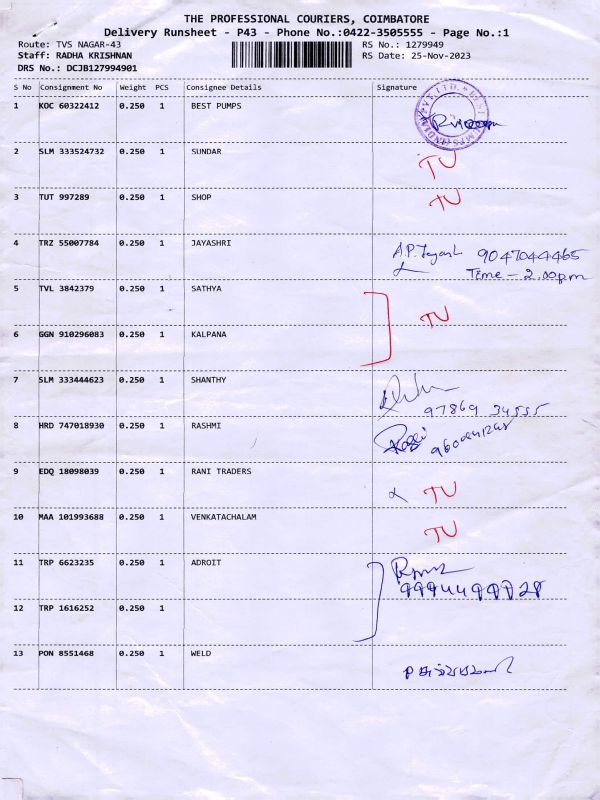 THE PROFESSIONAL COURIERS, COIMBATORE
Delivery Runsheet - P43 - Phone No.:0422-3505555 - Page No.:1
Route: TVS NAGAR-43 RS No.: 1279949
Staff: RADHA KRISHNAN RS Date: 25-Nov-2023
DRS No.: DCJB127994901
S No Consignment No Weight PCS Consignee Details Signature
1 KOC 60322412 0.250 1 BEST PUMPS
2 SLM 333524732 0.250 1 SUNDAR TU
3 TUT 997289 0.250 1 SHOP TU
4 TRZ 55007784 0.250 1 JAYASHRI A.P. 9047044465
Time - 2.00pm
5 TVL 3842379 0.250 1 SATHYA
TU
6 GGN 910296083 0.250 1 KALPANA
7 SLM 333444623 0.250 1 SHANTHY
97869 34555
8 HRD 747018930 0.250 1 RASHMI
9 EDQ 18098039 0.250 1 RANI TRADERS TU
10 MAA 101993688 0.250 1 VENKATACHALAM TU
11 TRP 6623235 0.250 1 ADROIT
12 TRP 1616252 0.250 1
13 PON 8551468 0.250 1 WELD